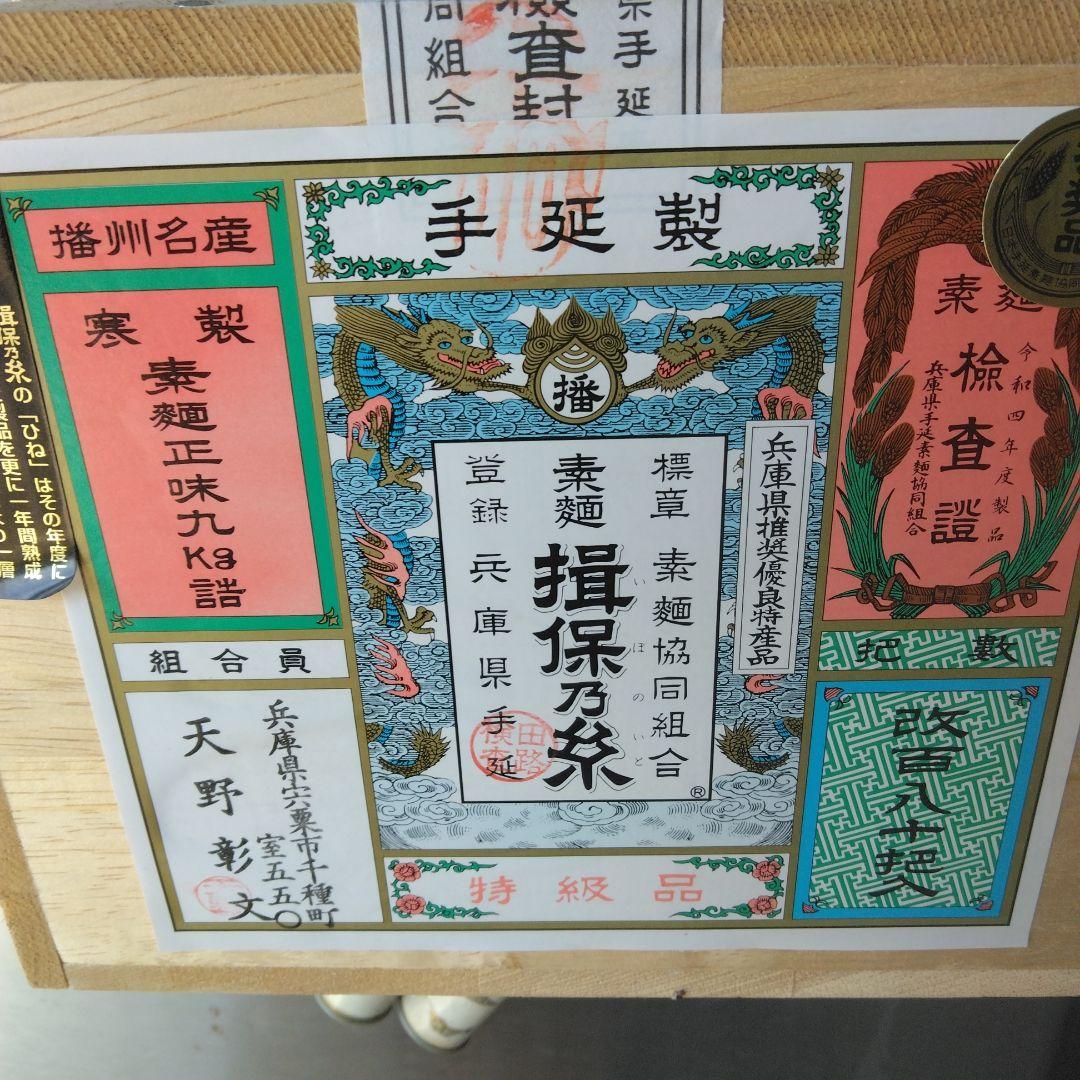 同組合
検査封
県手延
手延製
播州名産
寒製
素麺正味九Kg詰
組合員
兵庫県宍粟市千種町
室五五〇
天野彰文
播
兵庫県推奨優良特産品
標章 素麺協同組合
素麺 揖保乃糸
いぼのいと
®
登録 兵庫県手延
田路
検査
特級品
素麺
検査證
令和四年度製品
兵庫県手延素麺協同組合
把数
改百八十把入
揖保乃糸の「ひね」はその年度に
製品を更に一年間熟成